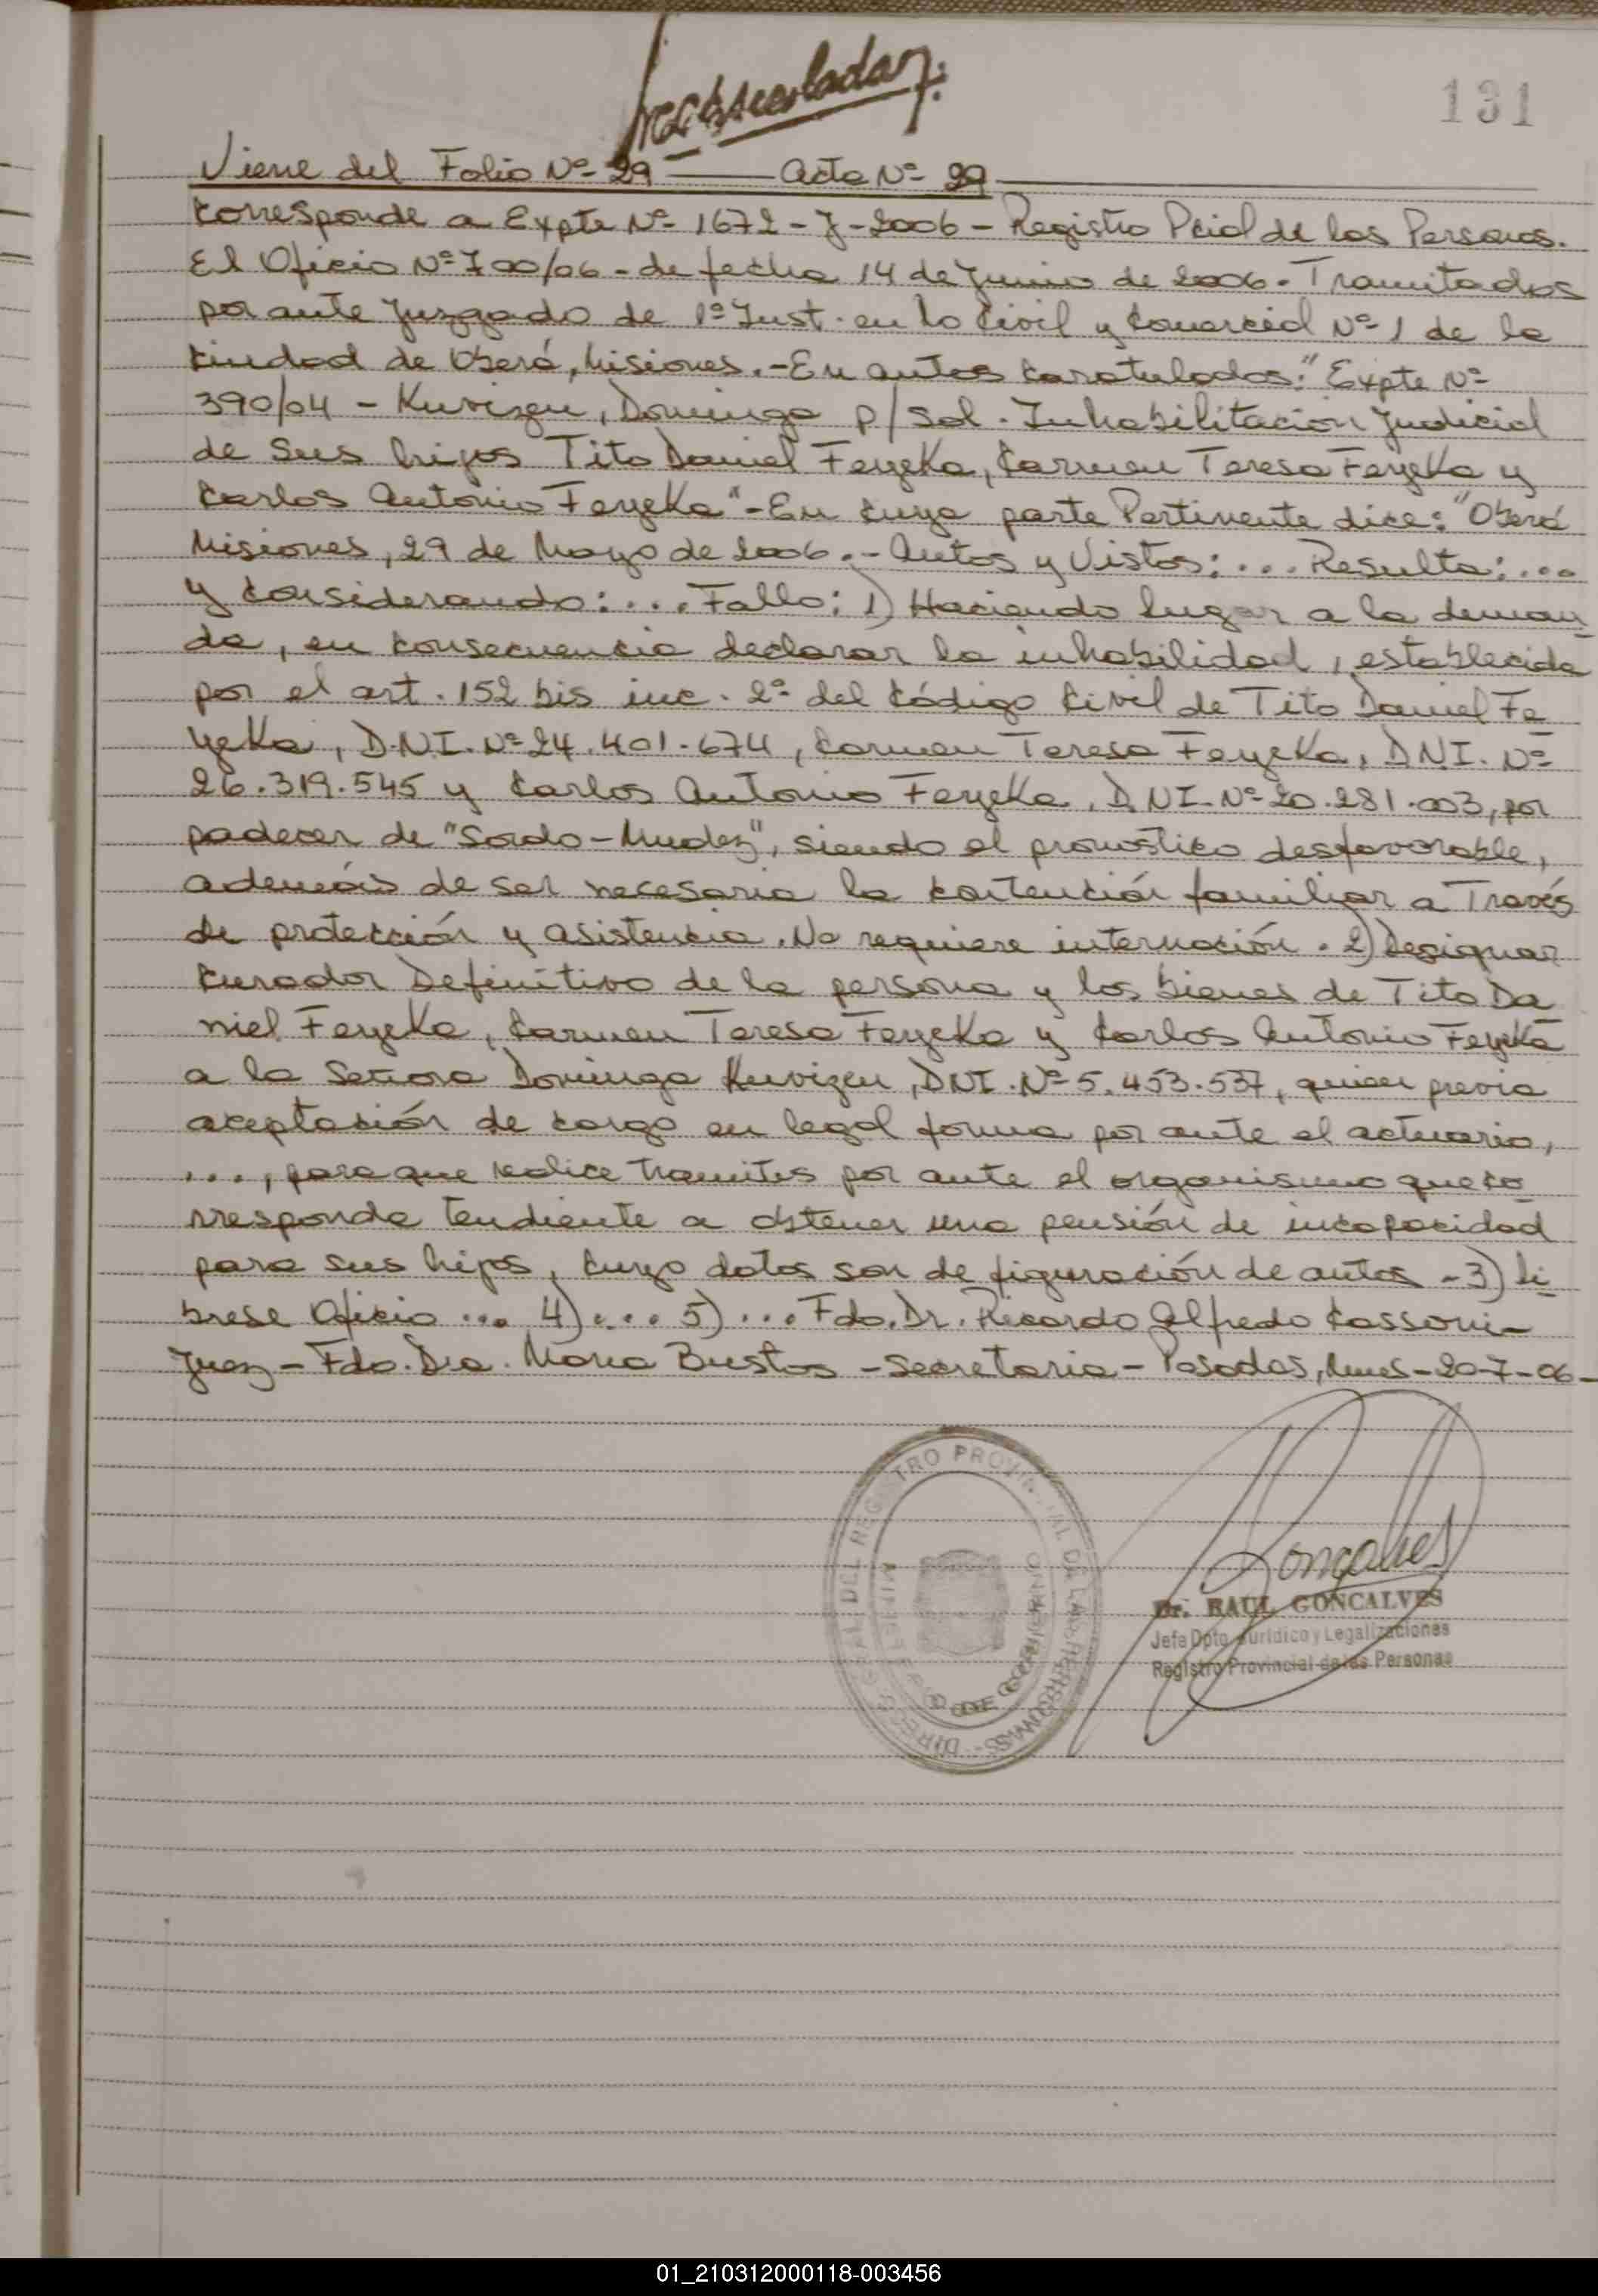 131
Viene del Folio Nº 29 — Acta Nº 29
Corresponde a Expte Nº 1672-J-2006 - Registro Pcial de las Personas.
El Oficio Nº 700/06 - de fecha 14 de Junio de 2006. Tramitados
por ante Juzgado de 1º Inst. en lo Civil y Comercial Nº 1 de la
Ciudad de Oberá, Misiones. - En autos caratulados: "Expte Nº
390/04 - Kuvizen, Dominga p/ Sol. Inhabilitación Judicial
de Sus hijos Tito Daniel Feyeka, Carmen Teresa Feyeka y
Carlos Antonio Feyeka" - En cuya parte Pertinente dice: "Oberá
Misiones, 29 de Mayo de 2006. - Autos y Vistos: ... Resulta: ...
y considerando: ... Fallo: 1) Haciendo lugar a la deman
da, en consecuencia declarar la inhabilidad, establecida
por el art. 152 bis inc. 2º del Código Civil de Tito Daniel Fe
yeka, D.N.I. Nº 24.401.674, Carmen Teresa Feyeka, DNI. Nº
26.319.545 y Carlos Antonio Feyeka, DNI. Nº 20.281.003, por
padecer de "Sordo-Mudez", siendo el pronóstico desfavorable,
además de ser necesaria la contención familiar a Través
de protección y asistencia. No requiere internación. 2) Designar
Curador Definitivo de la persona y los bienes de Tito Da
niel Feyeka, Carmen Teresa Feyeka y Carlos Antonio Feyeka
a la Señora Dominga Kuvizen, DNI. Nº 5.453.537, quien previa
aceptación de cargo en legal forma por ante el actuario,
..., para que realice tramites por ante el organismo que co
rresponda tendiente a obtener una pensión de incapacidad
para sus hijos, cuyo datos son de figuración de autos - 3) Li
brese Oficio ... 4) ... 5) ... Fdo. Dr. Ricardo Alfredo Cassoni -
Juez - Fdo. Dra. Maria Bustos - Secretaria - Posadas, Mnes - 20-7-06 -
DIRECC GRAL DEL REGISTRO PROVINCIAL DE LAS PERSONAS
Goncalves
Dr. RAUL GONCALVES
Jefe Dpto. Jurídico y Legalizaciones
Registro Provincial de las Personas
01_210312000118-003456